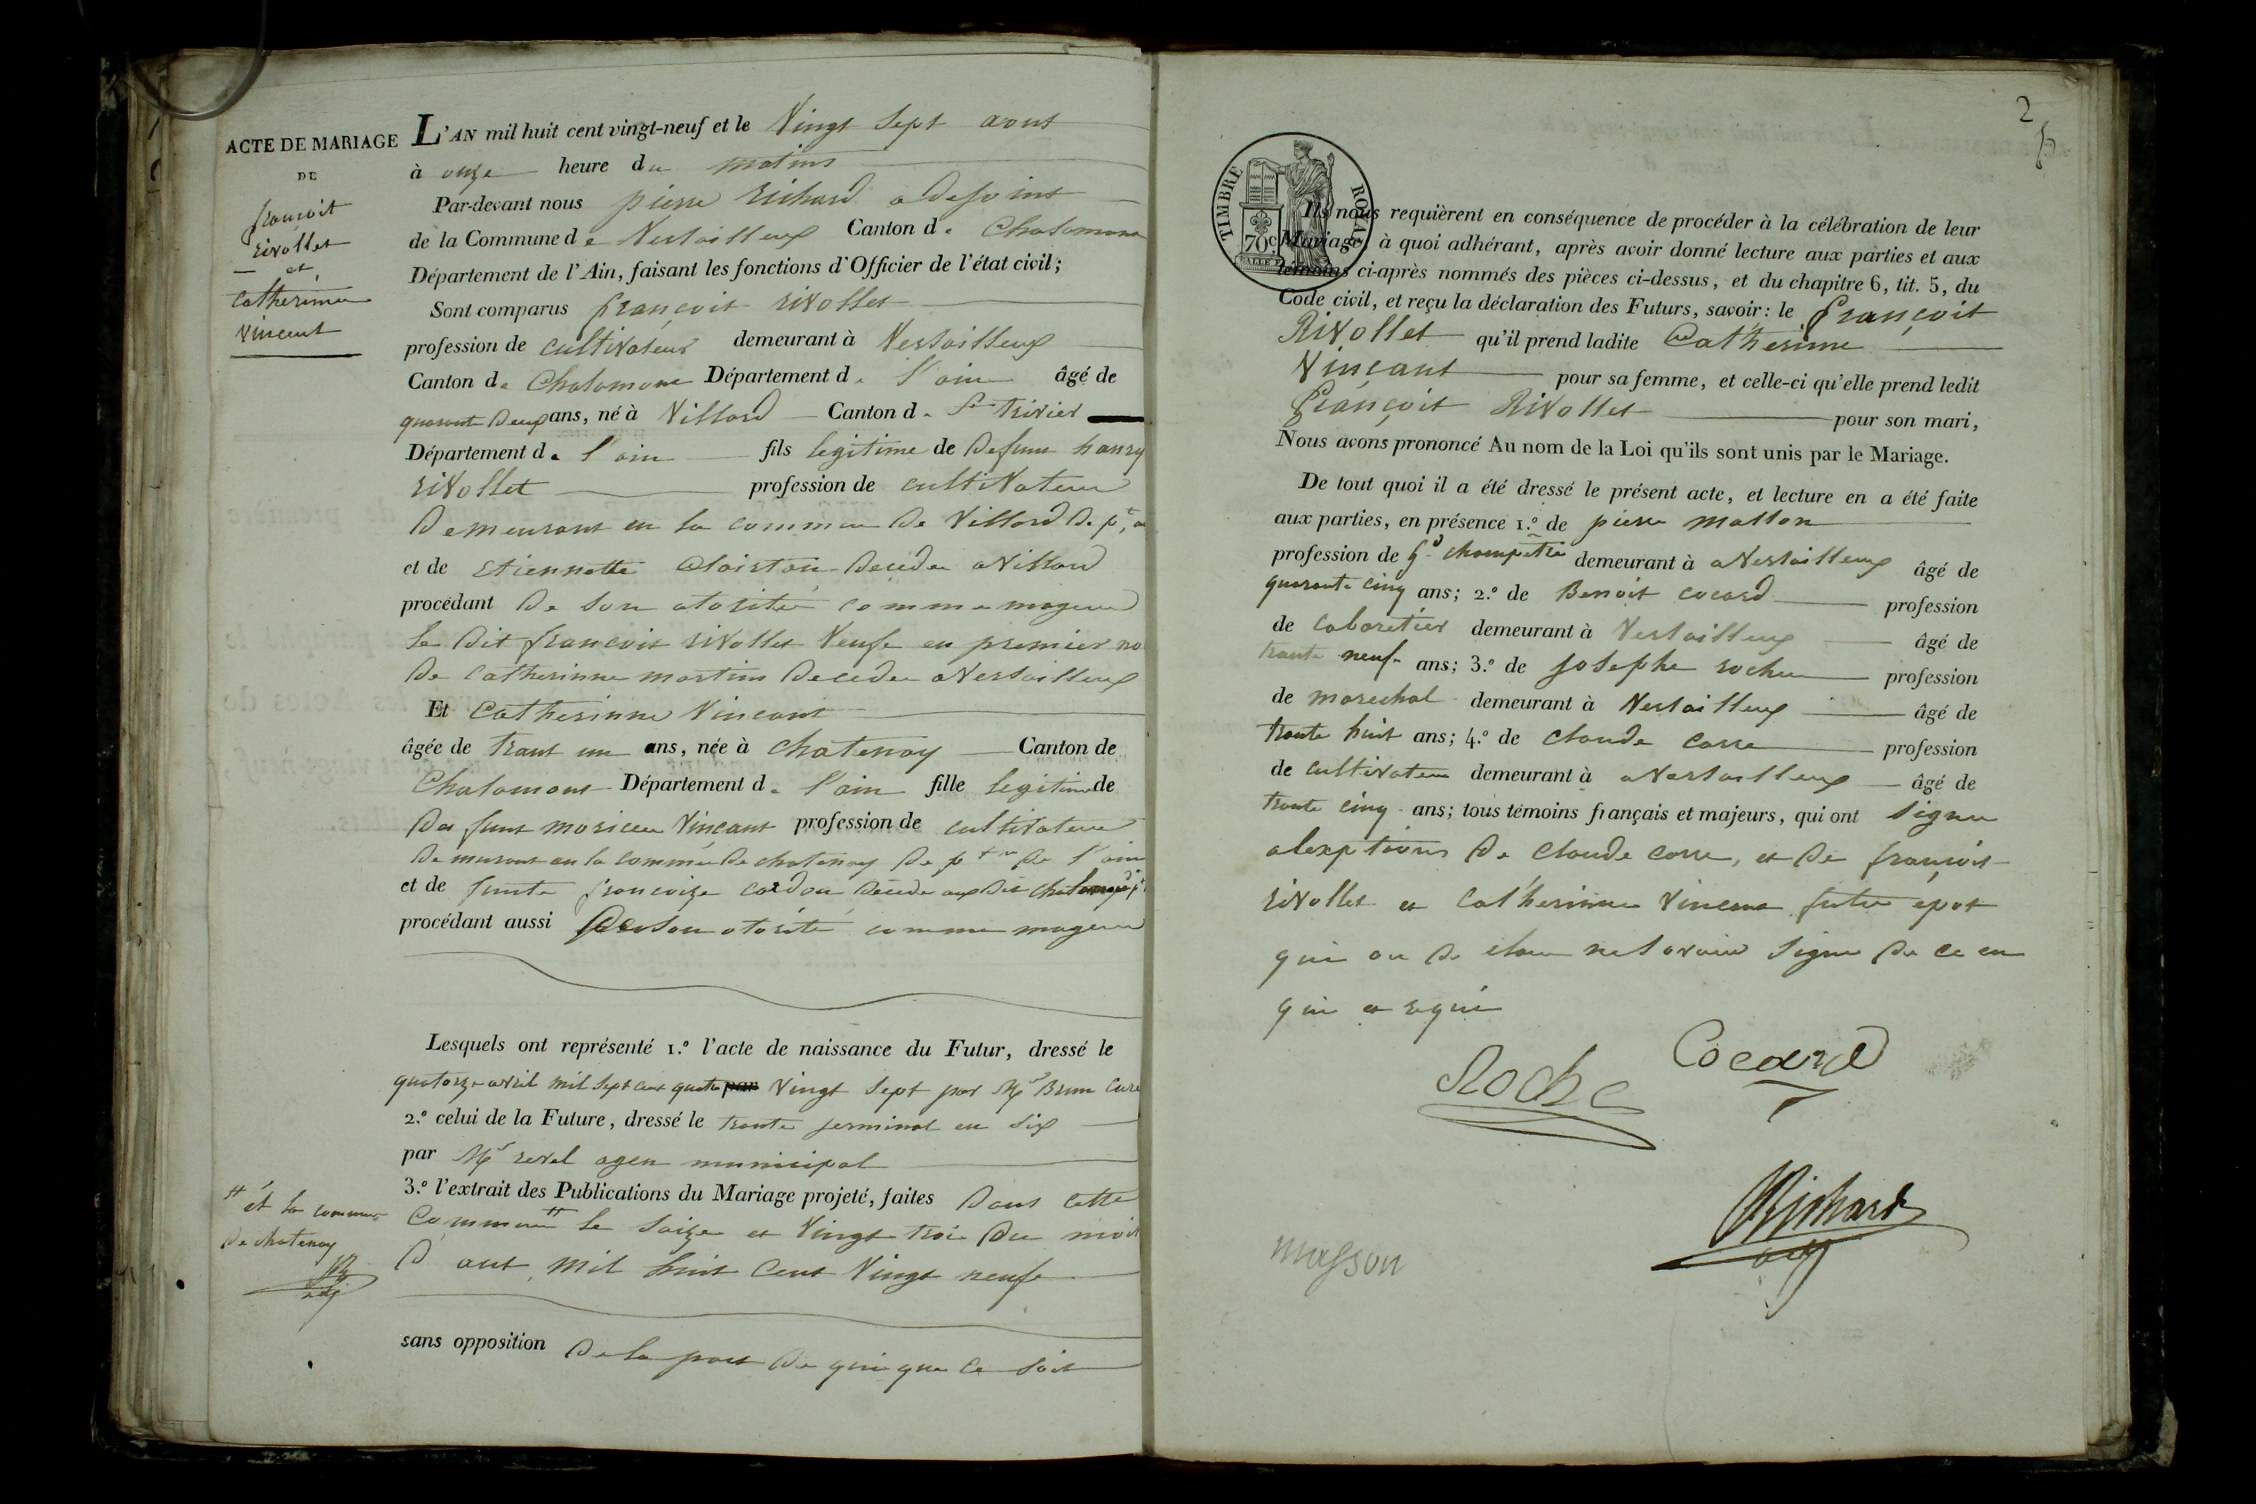 ACTE DE MARIAGE
DE
francoit
rivollet
et
catherinne
vincent
L'AN mil huit cent vingt-neuf et le Vingt Sept aout
à onze heure du matins
Par-devant nous pierre Richard adejoint
de la Commune de Versailleux Canton de Chalamon
Département de l'Ain, faisant les fonctions d'Officier de l'état civil;
Sont comparus françoit rivollet
profession de cultivateur demeurant à Versailleux
Canton de Chalamon Département d. l'ain âgé de
quarante deux ans, né à Villard Canton d. St trivier
Département d. l'ain fils legitime de defunt hanry
riVollet profession de cultivateur
demeurant en la commune de Villard dept
et de Etiennette decedee a Villard
procédant de son atorité comme mageur
le dit francois riVollet Veufe en premier no
de Catherinne martin decedee a Versailleux
Et Catherinne Vincant
âgée de trant un ans, née à chatenay Canton de
Chalamont Département d. l'ain fille legitime de
defunt Vinçant profession de cultivateur
demeurant en la commune de chatenay de l'ain
et de funte francoize cardon decede
procédant aussi de son atorité comme mageur
Lesquels ont représenté 1.º l'acte de naissance du Futur, dressé le
quatorze avril mil sept cent quatre par Vingt Sept par Mr Brun Curé
2.º celui de la Future, dressé le trante jerminal en six
par Mr revel agen municipal
3.º l'extrait des Publications du Mariage projeté, faites dans cette
Commune # le saize et Vingt troi du mois
d'aut mil huit Cent Vingt neufe
# et la commune
de chatenay
adj
sans opposition de la part de qui que ce soit
2
TIMBRE ROYAL
70c
Ils nous requièrent en conséquence de procéder à la célébration de leur
Mariage, à quoi adhérant, après avoir donné lecture aux parties et aux
témoins ci-après nommés des pièces ci-dessus, et du chapitre 6, tit. 5, du
Code civil, et reçu la déclaration des Futurs, savoir: le françoit
RiVollet qu'il prend ladite Catherinne
Vinçant pour sa femme, et celle-ci qu'elle prend ledit
françoit RiVollet pour son mari,
Nous avons prononcé Au nom de la Loi qu'ils sont unis par le Mariage.
De tout quoi il a été dressé le présent acte, et lecture en a été faite
aux parties, en présence 1.º de pierre masson
profession de Gd champetre demeurant à a Versailleux âgé de
quarante cinq ans; 2.º de Benoit cocard profession
de cabaretier demeurant à Versailleux âgé de
trante neuf ans; 3.º de josephe roche profession
de marechal demeurant à Versailleux âgé de
trante huit ans; 4.º de claude carre profession
de cultivateur demeurant à a Versailleux âgé de
trante cinq ans; tous témoins français et majeurs, qui ont signer
alexptions de claude carre, et de françoit
riVollet et Catherinne Vincant futur epot
qui on de clare ne savoir signer de ce en
qui et requi
Roche
Cocard
Richard
adj
masson